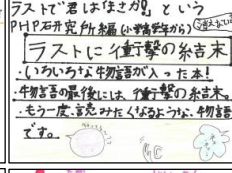 ラストで君は「まさか!」という
PHP研究所編(小学高学年から)
ラストに衝撃の結末
・いろいろな物語が入った本!
・物語の最後には、衝撃の結末。
・もう一度、読みたくなるような、物語
です。